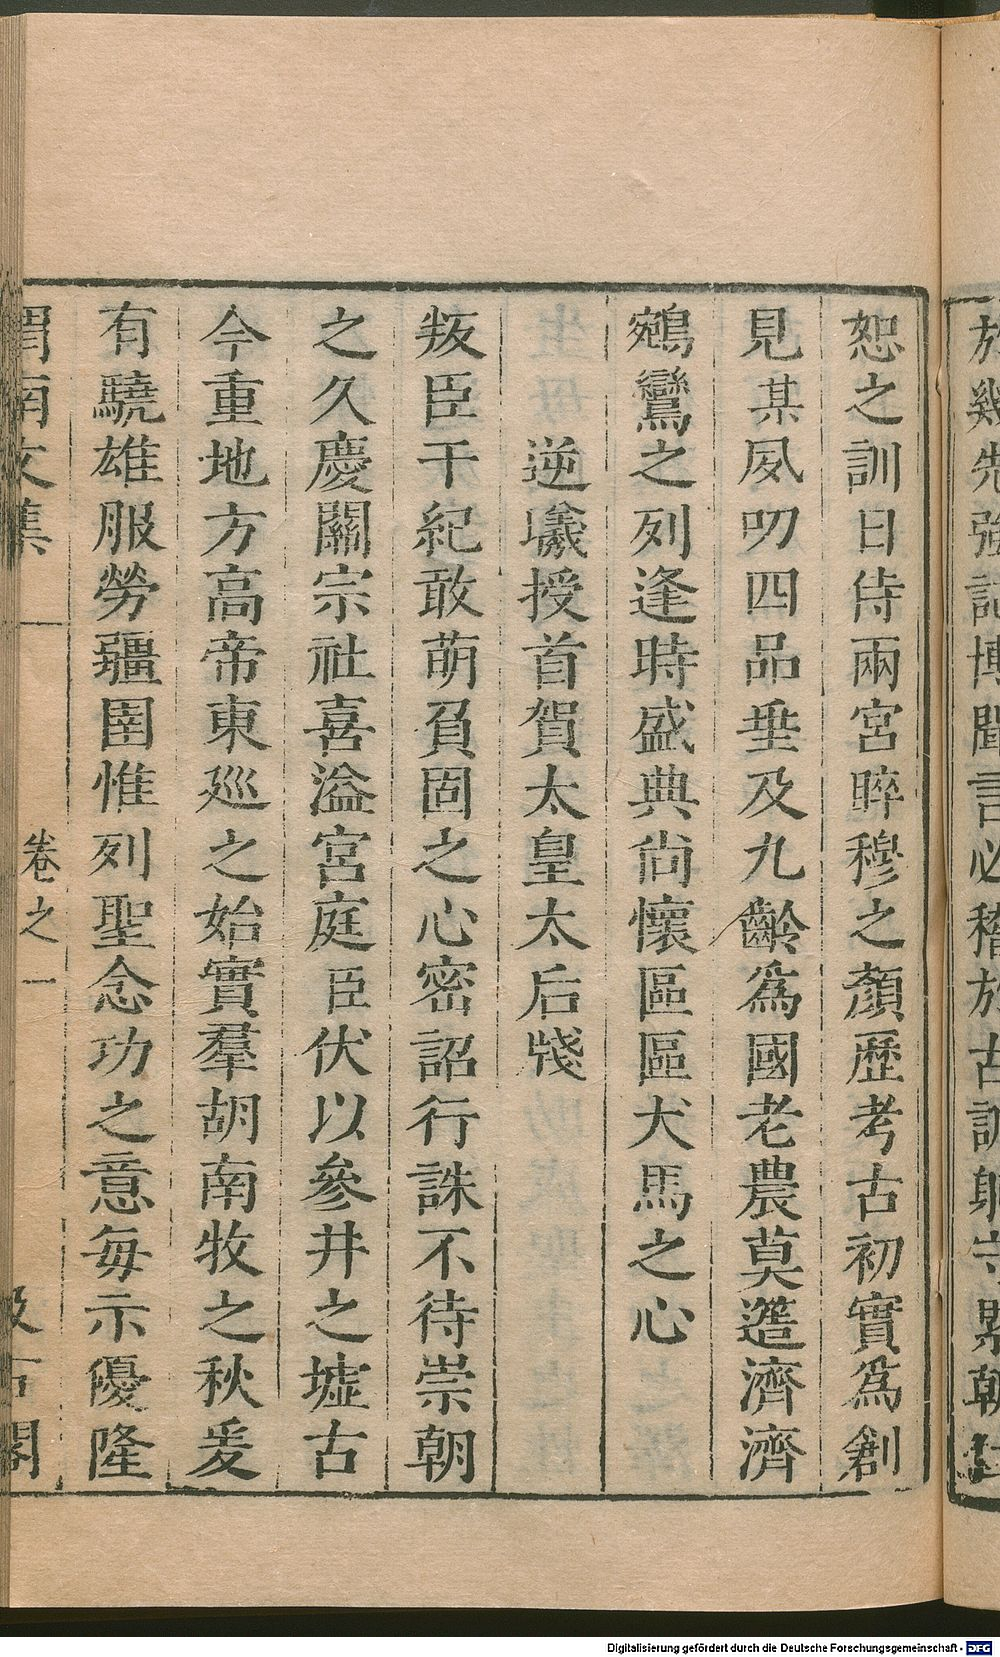 恕之訓日侍兩宮晬穆之顏歷考古初實爲創
見某夙叨四品垂及九齡爲國老農莫簉濟濟
鵷鸞之列逢時盛典尚懷區區犬馬之心
逆曦授首賀太皇太后牋
叛臣干紀敢萌負固之心密詔行誅不待崇朝
之久慶關宗社喜溢宮庭臣伏以參井之墟古
今重地方高帝東巡之始實羣胡南牧之秋爰
有驍雄服勞疆圉惟列聖念功之意每示優隆
渭南文集 卷之一 汲古閣
Digitalisierung gefördert durch die Deutsche Forschungsgemeinschaft - DFG